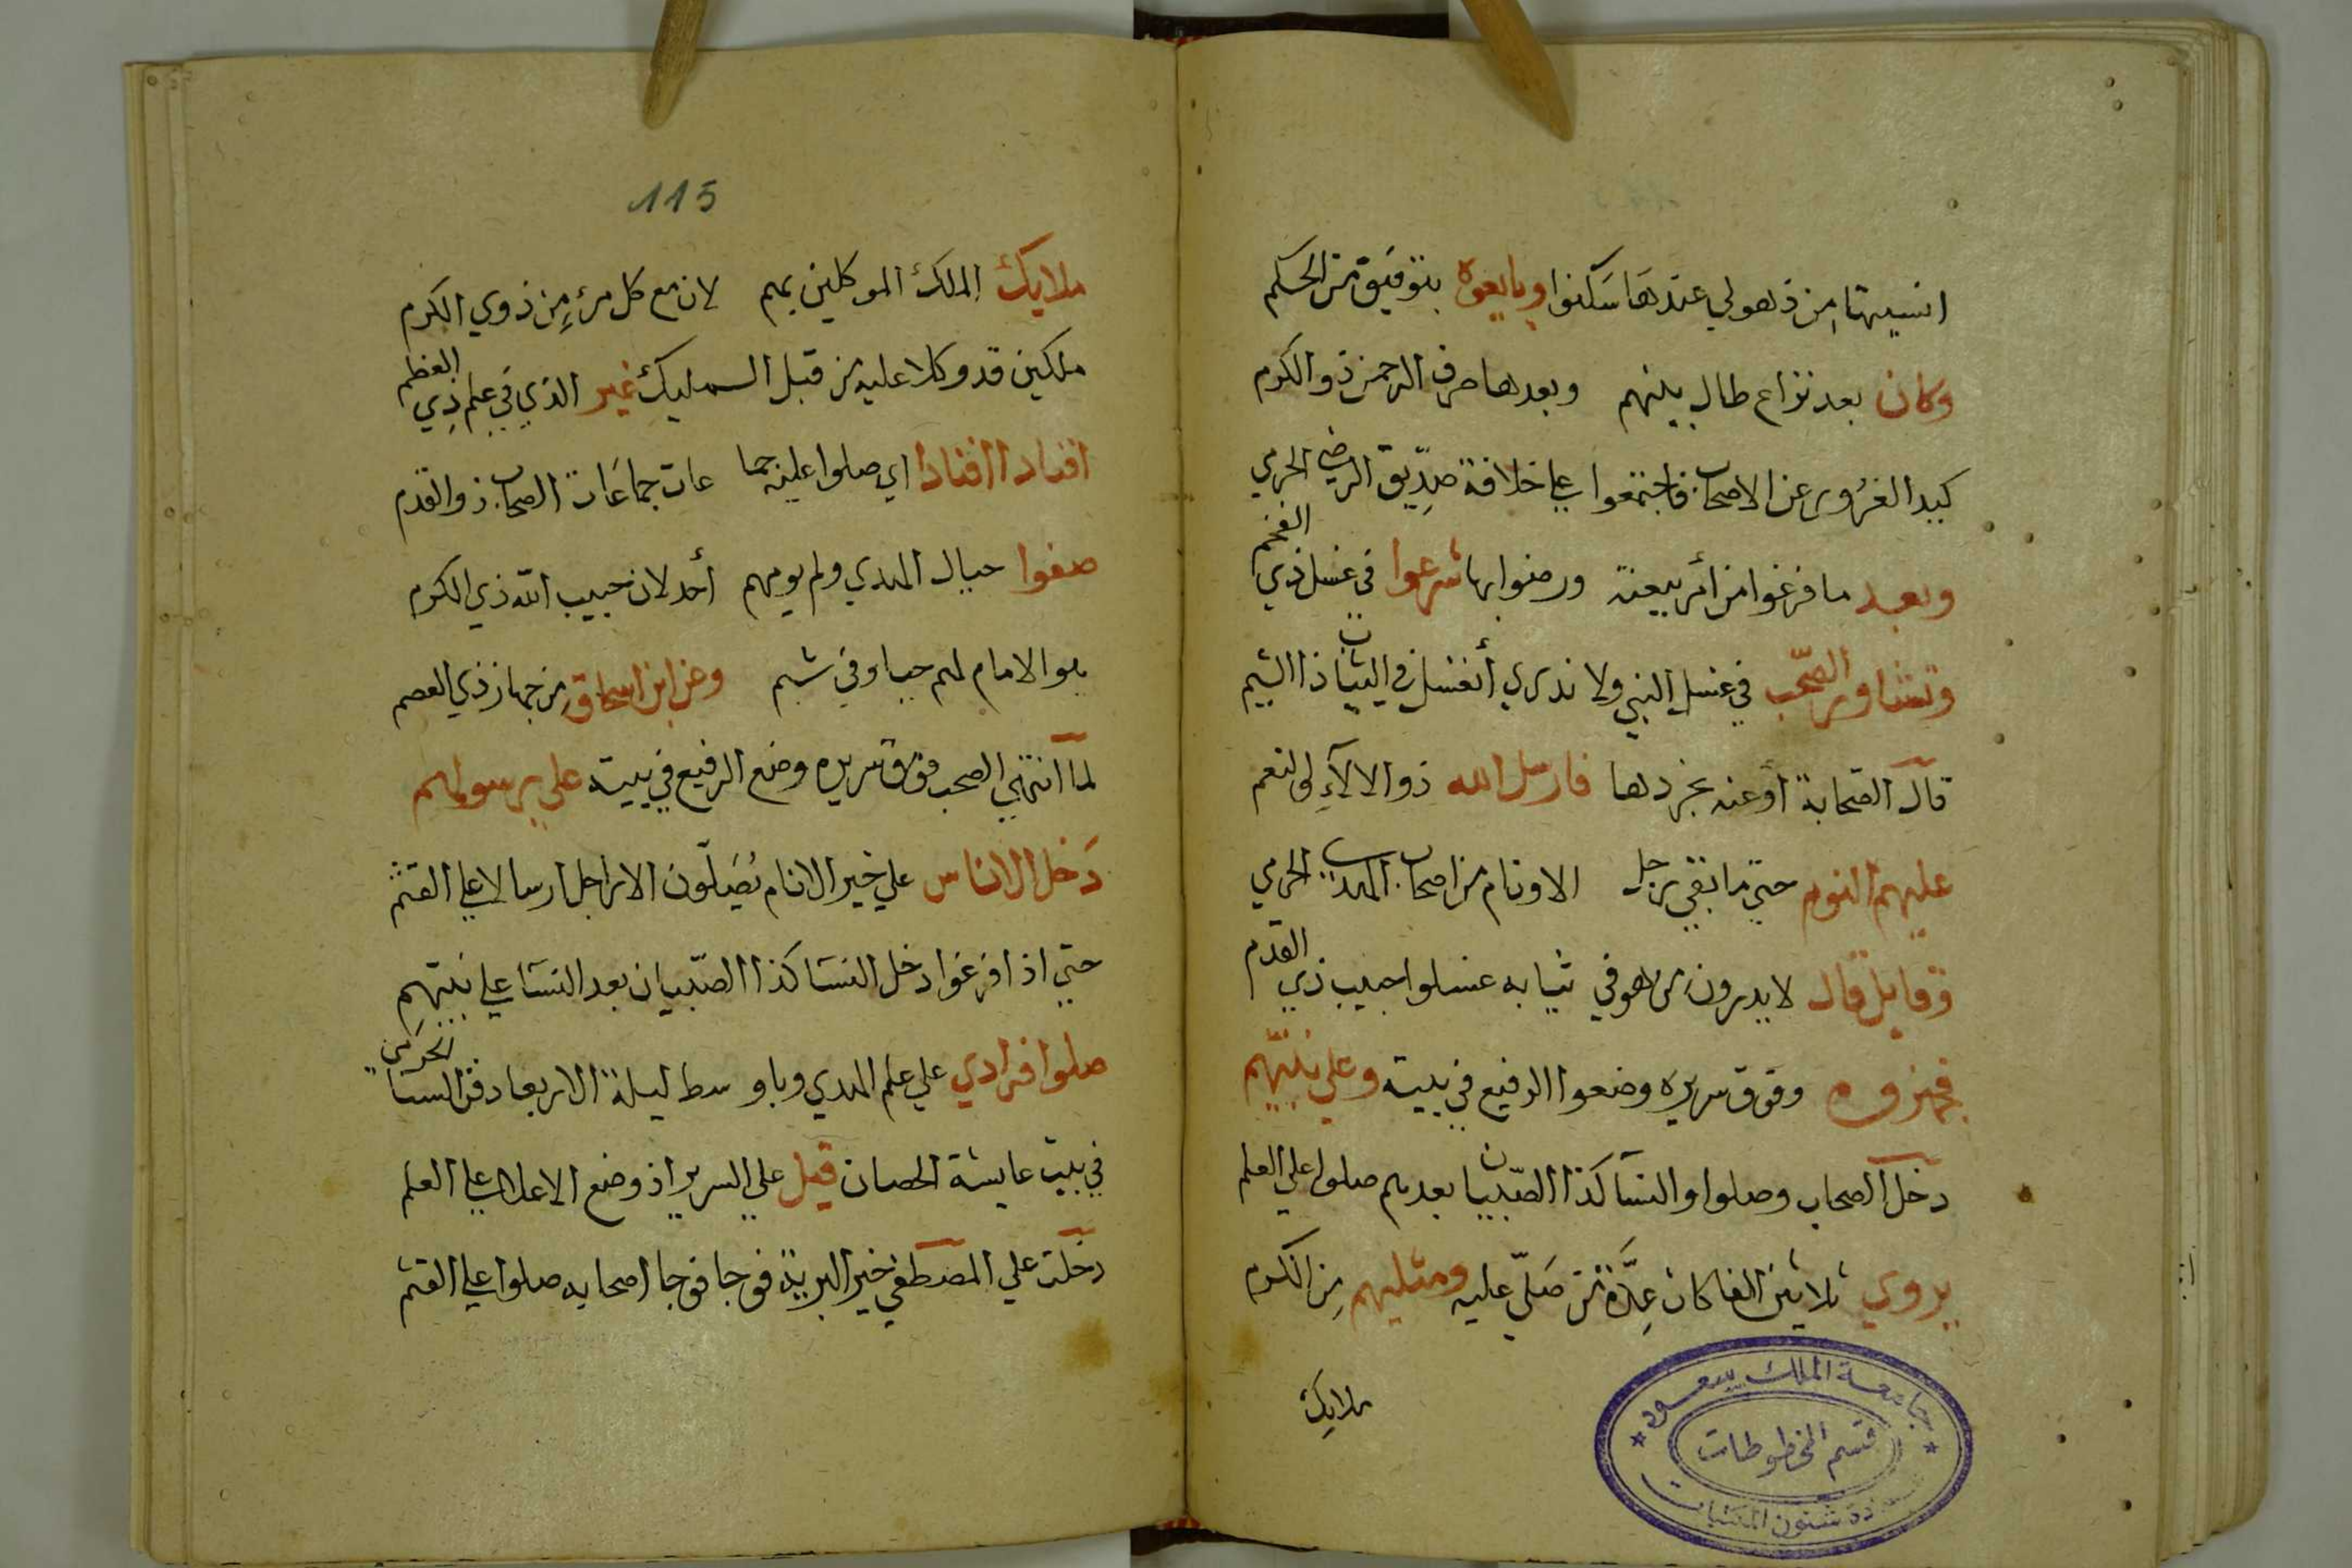 انسيتها من ذهولي عندها سكنوا وبايعوه بتوفيق من الحكم
وكان بعد نزاع طال بينهم وبعدها صرف الرحمن ذو الكرم
كيد الغرور عن الاصحاب فاجتمعوا علي خلافة صديق الرضي الحرمي
وبعد ما فرغوا من أمر بيعته ورضوا بها شرعوا في غسل ذي الفخم
وتشاور الصحب في غسل النبي ولا ندري أنغسل في الثياب ذا الشيم
قال الصحابة أو عنه نجردها فارسل الله ذو الالآء لي النعم
عليهم النوم حتي ما بقي رجل الا ونام من اصحاب المهدب الحرمي
وقايل قال لا يدرون من هو في ثيابه غسلوا حبيب ذي القدم
فجهزوه وفوق سريره وضعوا الرفيع في بيته وعلي نبيهم
دخل الصحاب وصلوا والنسآ كذا الصبيان بعدهم صلوا علي العلم
يروي ثلاثين الفا كان عدة من صلي عليه ومثليهم من الكرم
ملايك
جامعة الملك سعود
قسم المخطوطات
عمادة شئون المكتبات
115
ملايك الملك الموكلين بهم لان مع كل مرء من ذوي الكرم
ملكين قد وكلا عليه من قبل المليك غير الذي في علم ذي العظم
افنادا افنادا اي صلوا عليه جما عات جماعات الصحاب ذو القدم
صفوا حيال الهدي ولم يومهم أحد لان حبيب الله ذي الكرم
هو الامام لهم حيا وفي شبم وعن ابن اسحاق من جهاز ذي العصم
لما انتهي الصحب فوق سريره وضع الرفيع في بيته علي رسولهم
دخل الاناس علي خير الانام يصلون الاراجل ارسالا علي القثم
حتي اذا فرغوا دخل النسا كذا الصبيان بعد النسآ علي نبيهم
صلوا فرادي علي علم الهدي وباو سط ليلة الاربعا دفن
في بيت عايشة الحصان قيل علي السرير اذ وضع الاعلا علي العلم
دخلت علي المصطفي خير البرية فوجا فوجا اصحابه صلوا علي القثم